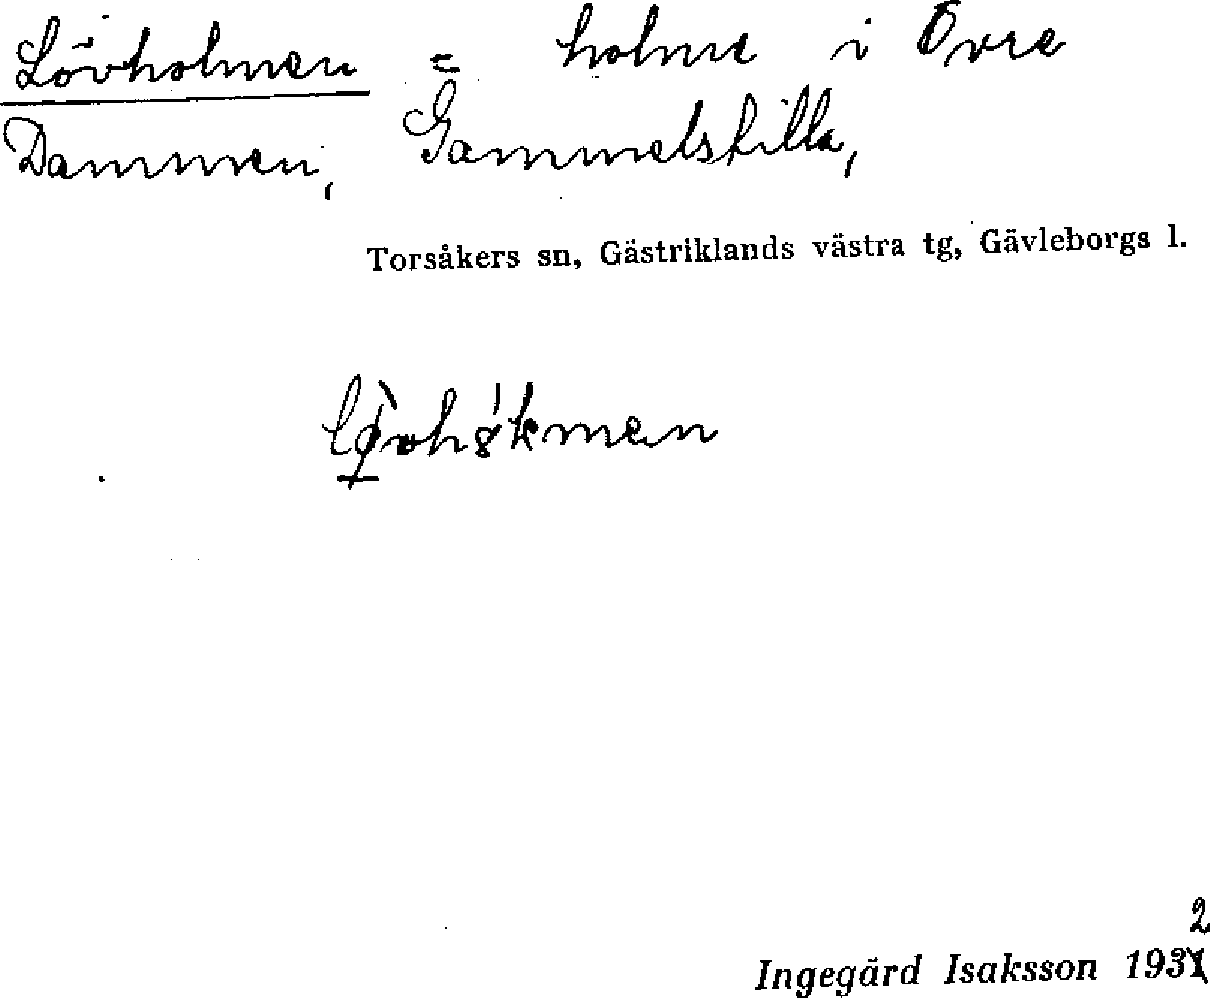 Lövholmen = holme i Övre
Dammen, Gammelskilla,
Torsåkers sn, Gästriklands västra tg, Gävleborgs l.
2
Ingegärd Isaksson 1931